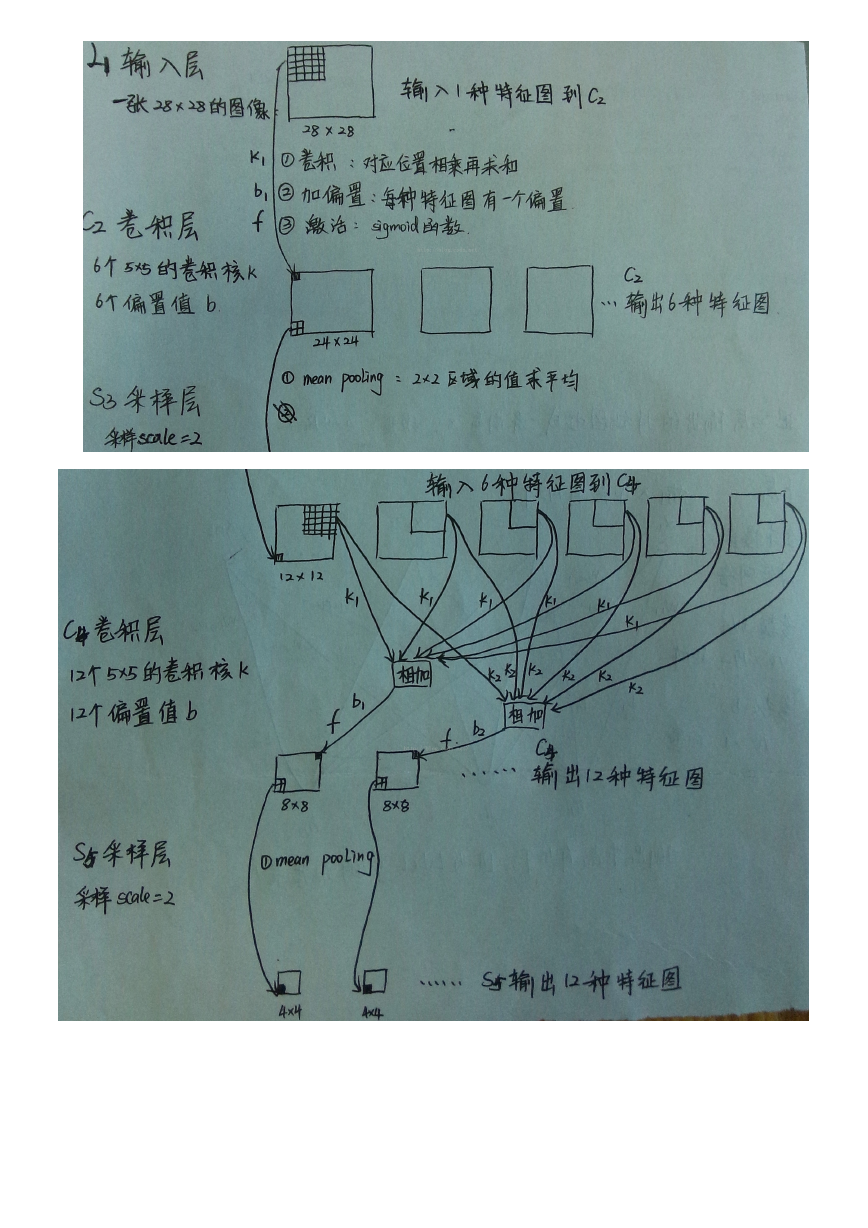 L1 输入层
一张28×28的图像
28×28
输入1种特征图到C2
k1 ①卷积：对应位置相乘再求和
b1 ②加偏置：每种特征图有一个偏置
f ③激活：sigmoid函数.
C2 卷积层
6个5×5的卷积核k
6个偏置值 b.
24×24
C2
…输出6种特征图
① mean pooling：2×2区域的值求平均
②
S3 采样层
采样scale=2
输入6种特征图到C4
12×12
k1 k1 k1 k1 k1 k1
C4卷积层
12个5×5的卷积核k
12个偏置值b
相加
k2 k2 k2 k2 k2 k2
相加
b1
f
f. b2
8×8
8×8
C4
……输出12种特征图
S5采样层
采样scale=2
①mean pooling
4×4
4×4
……S5输出12种特征图